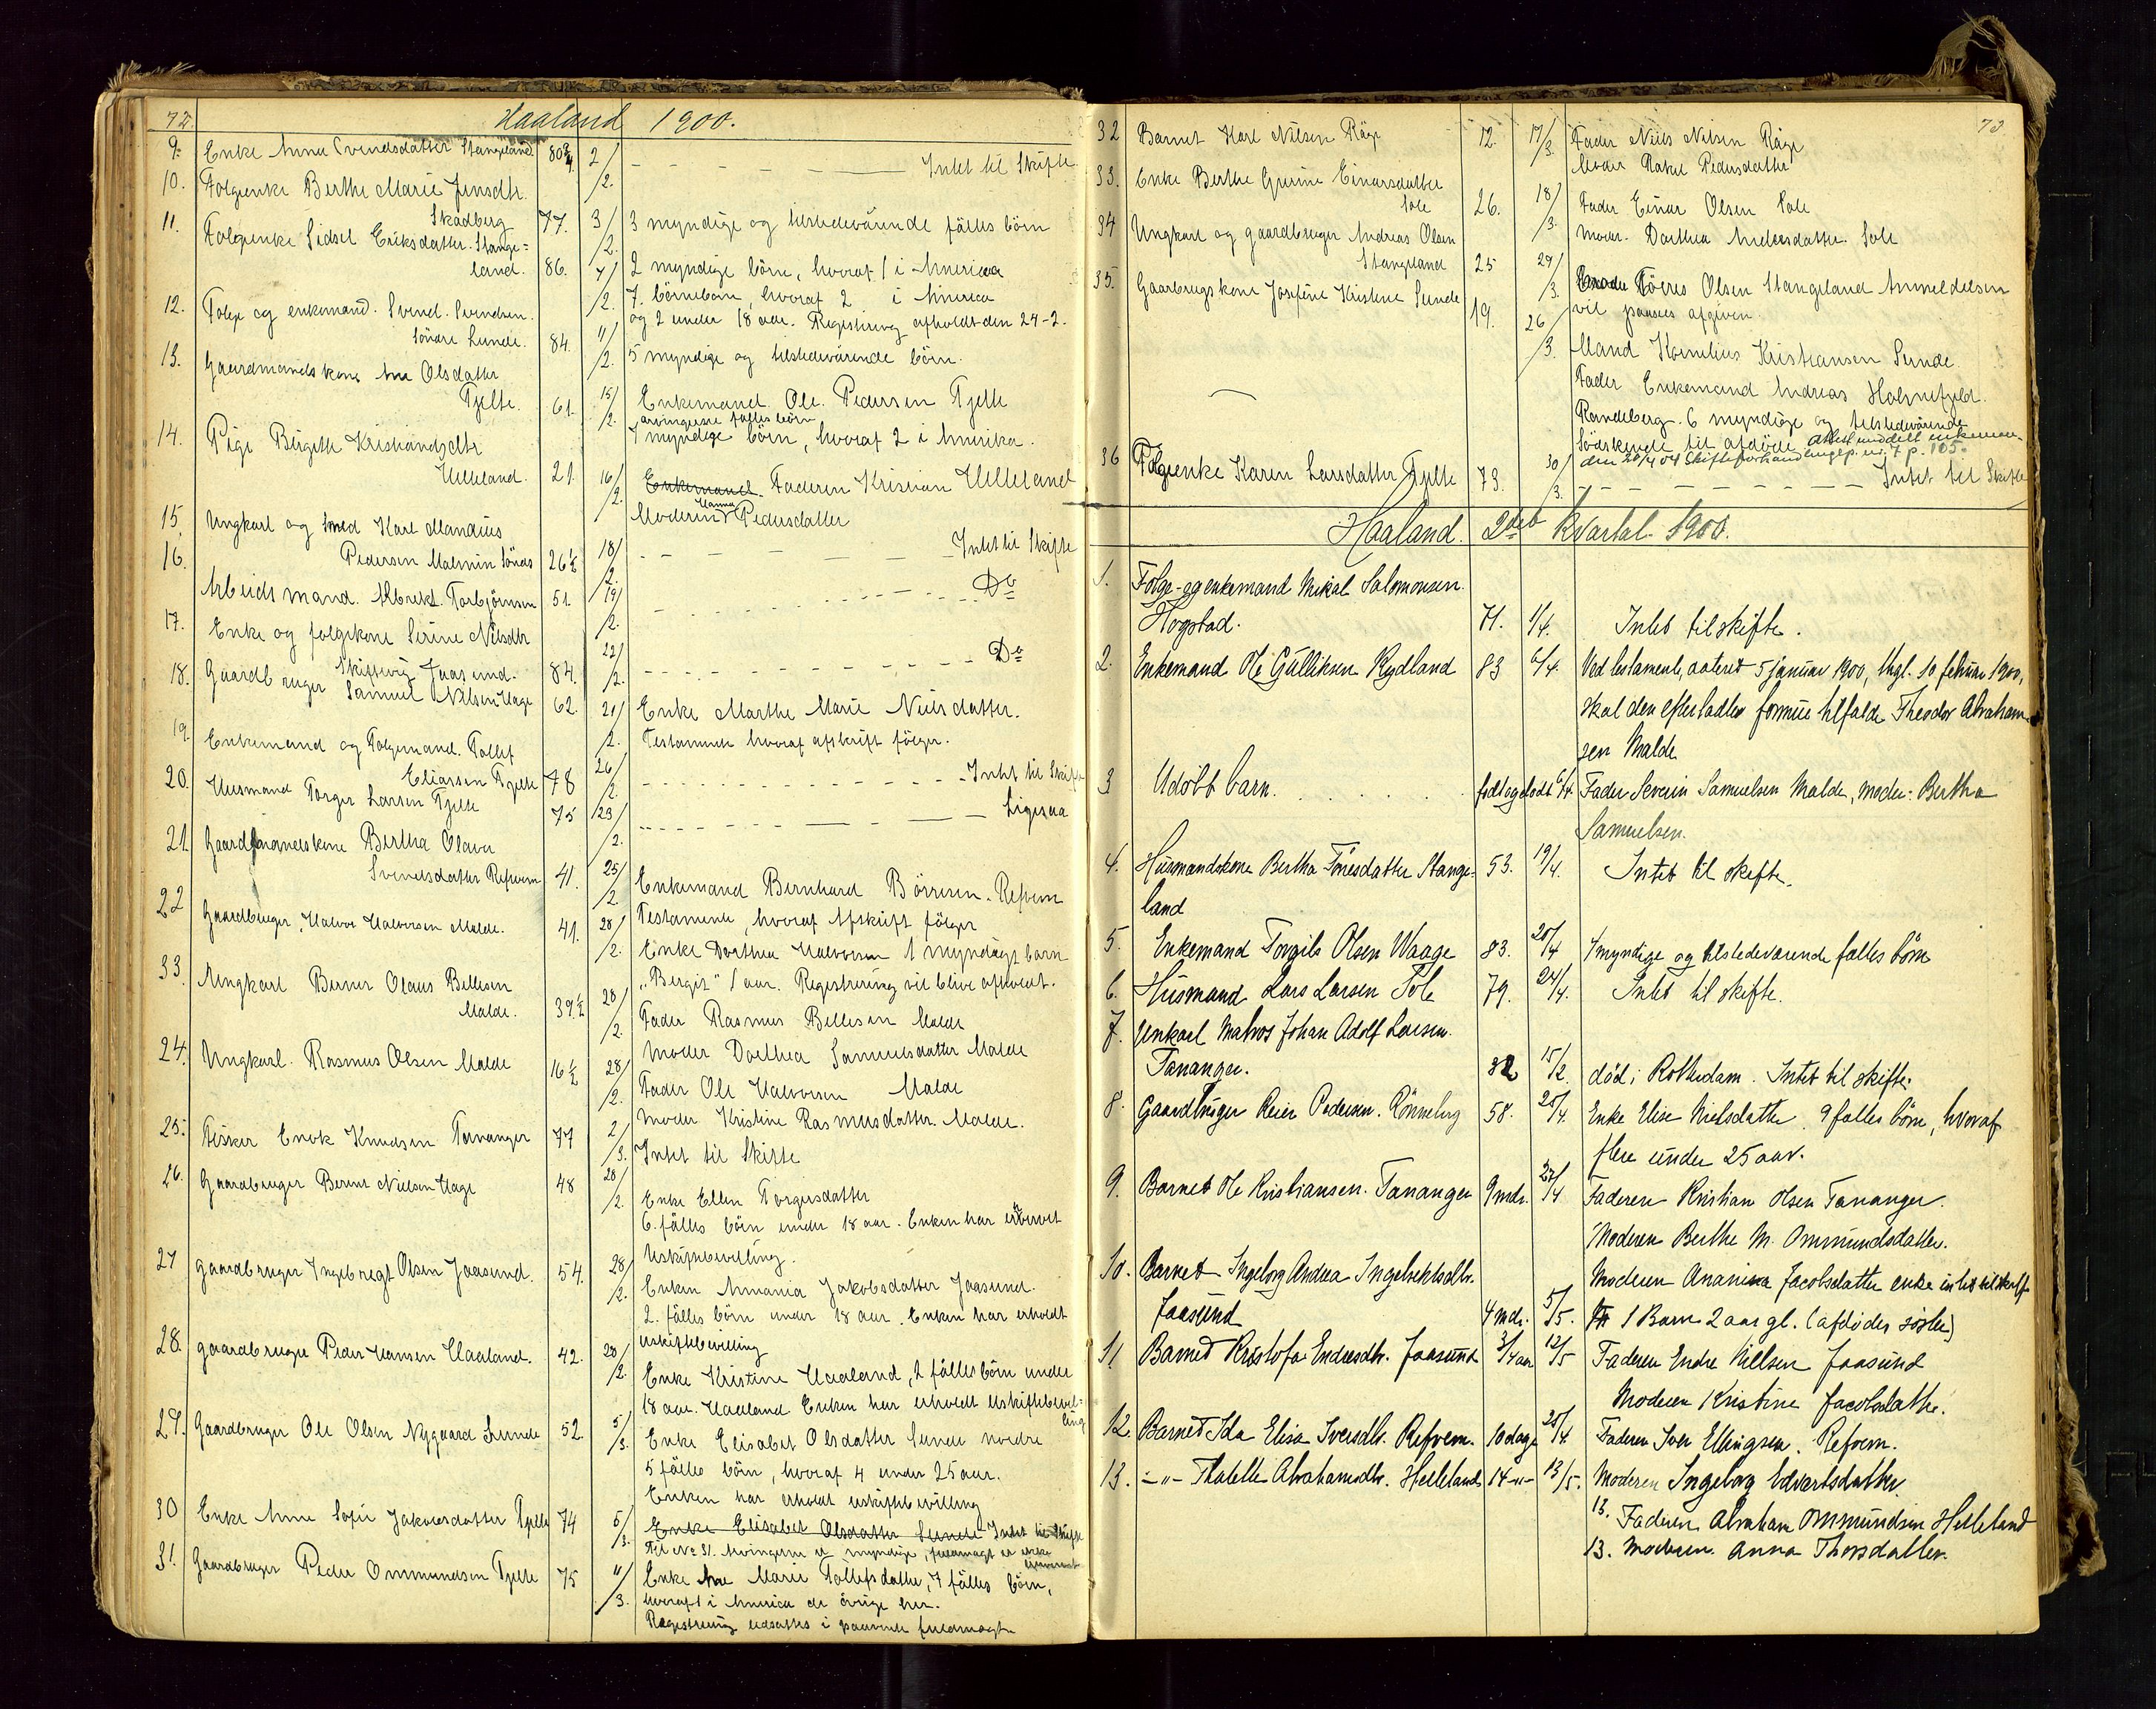 72.
Haaland 1900.
9. Enke Anna Svendsdatter Stangeland 80¾ 2/2. Intet til Skifte
10. Folgeenke Berthe Marie Jensdtr.
Skadberg 77. 3/2. 3 myndige og tilstedeværende fälles börn
11. Folgeenke Sidsel Eriksdatter. Stange=
land. 86. 7/2. 2 myndige börn, hvoraf 1 i America
7. börnebörn, hvoraf 2 i America
og 2 under 18 aar. Registrering afholdt den 24-2.
12. Folge og enkemand. Svend. Svendsen.
Söndre Sunde. 84. 11/2. 5 myndige og tilstedeværende börn.
13. Gaardmandskone Ane Olsdatter
Tjelte. 61. 15/2. Enkemand Ole. Pedersen Tjelte
arvingerne fälles börn
7 myndige börn, hvoraf 2 i Amerika.
14. Pige Birgitte Kristiansdtr
Helleland. 21. 16/2. Enkemand. Faderen Kristian Helleland
Moderen Hanna Pedersdatter
15. Ungkarl og Smed Karl Mandius
Pedersen Malmin Sörnes 26½ 18/2. Intet til Skifte
16. Arbeidsmand. Albrekt. Torbjörnsen 51. 19/2. Do
17. Enke og folgekone Serine Nilsdtr
Jaasund. 84. 22/2. Do
18. Gaardbruger Samuel Nilsen Hage 62. 21/2. Enke Marthe Marie Neils datter.
Testamente hvoraf afskrift fölger.
19. Enkemand og Folgemand. Tollef
Eliassen Tjelte 78 26/2. Intet til Skifte
20. Husmand Torger Larsen Tjelte 75 23/2. Ligesaa
21. Gaardmandskone Bertha Olava
Svendsdatter Refvem 41. 25/2. Enkemand Bernhard Börresen. Refvem
Testamente, hvoraf Afskrift fölger
22 Gaardbruger. Halvor Halvorsen Malde. 41. 28/2. Enke Dorthea Halvorsen 1 myndigt barn
„Bergit" 1 aar. Registrering vil blive afholdt.
33. Ungkarl Berner Olaus Bellesen
Malde. 39½ 28/2. Fader Rasmus Bellesen Malde
Moder Dorthea Samuelsdatter Malde
24. Ungkarl. Rasmus Olsen Malde 16½ 28/2. Fader Ole Halvorsen Malde
Moder Kristine Rasmusdatter. Malde.
25. Fisker Enok Knudsen Tananger 77 2/3. Intet til Skifte
26. Gaardbruger Berner Nielsen Hage 48 28/2. Enke Ellen Torgersdatter
6. fälles börn under 18 aar. Enken har erhvervet
Uskiftebevilling.
27 Gaardbruger Ingebregt Olsen Jaasund. 54. 28/2. Enken Annania Jakobsdatter Jaasund.
2. fälles börn under 18 aar. Enken har erholdt
uskiftebevilling
28. Gaardbruger Peder Hansen Haaland. 42. 28/2. Enke Kristine Haaland, 2 fälles börn under
18 aar. Haaland Enken har erholdt Uskiftebevil-
ling
29. Gaardbruger Ole Olsen Nygaard Sunde 52. 5/3. Enke Elisabet Olsdatter Sunde nordre
5 fälles börn, hvoraf 4 under 25 aar.
Enken har erholdt uskiftebevilling
30 Enke Anne Sofie Jakobsdatter Tjelte 74 5/3. Enke Elisabet Olsdatter Sunde Intet til Skifte
Til No 31. Arvingerne er myndige, fuldmagt er ikke
31. Gaardbruger Peder Ommundsen Tjelte 75 11/3. Enke Ane Marie Tollefsdatter, 7 fälles börn,
hvoraf 1 i America de övrige her.
Registrering udsættes i paavente fuldmagt
73
32 Barnet Karl Nilsen Räge 12. 17/3. Fader Niels Nilsen Räge
Moder Rakel Pedersdatter
33. Enke Berthe Gurine Einarsdatter
Sole 26. 18/3. Fader Einar Olsen Sole
Moder. Dorthea Andersdatter. Sole
34 Ungkarl og gaardbruger Andreas Olsen
Stangeland 25 29/3. Törres Olsen Stangeland Anmeldelsen
vil paases afgiven.
35. Gaarbrugskone Josefine Kristine Sunde 19. 26/3. Mand Kornelius Kristiansen Sunde
Fader Enkemand Andreas Holmefjeld.
Randeberg. 6 myndige og tilstedeværende
Södskende til afdöde
36 Folgeenke Karen Larsdatter Tjelte 73. 30/3. Intet til Skifte
Haaland. 2det Kvartal 1900.
1. Folge- og enkemand Mikal Salomonsen.
Hogstad. 71. 1/4. Intet til skifte.
2. Enkemand Ole Gülliksen Rydland 83 6/4. Ved testamente, dateret 5 januar 1900, thgl. 10 februar 1900,
skal den efterladte formue tilfalde Theodor Abraham
sen Malde
3 Udöbt barn. födt og död 6/4. Fader Severin Samuelsen Malde, moder: Bertha
Samuelsen.
4. Husmandskone Bertha Tönesdatter Stange- 53. 19/4. Intet til skifte.
land
5. Enkemand Torgils Olsen Waage 83. 20/4 4 myndige og tilstedeværende fælles börn
6. Husmand Lars Larsen Sole 79. 24/4. Intet til skifte.
7. Unkarl Matros Johan Adolf Larsen.
Tananger. 32 15/2. död i Rotterdam. Intet til skifte.
8. Gaardbruger Reier Pedersen. Rönneberg 58. 25/4. Enke Elise Nielsdatter. 9 fælles börn, hvoraf
flere under 25 aar.
9. Barnet Ole Kristiansen. Tananger 9 mdr. 27/4 Faderen Kristian Olsen Tananger.
Moderen Berthe M. Ommundsdatter.
10. Barnet Ingeborg Andrea Ingebrektsdtr. Moderen Ananina Jacobsdatter enke intet til skift
Jaasund 4 mdr. 5/5. 1 Barn 2 aar gl. (afdödes söster)
11 Barnet Kristofa Endresdtr. Jaasund 3/4 aar 12/5 Faderen Endre Nilsen Jaasund
Moderen Kristine Jacobsdatter.
12. Barnet Ida Elisa Iversdtr. Refvem. 10 dage 20/4. Faderen Iver Ellingsen. Refvem.
13. -"- Thalette Abrahamsdtr. Helleland 14 -"- 13/5. Moderen Ingeborg Edvartsdatter.
13. Faderen Abraham Ommundsen Helleland
13. Moderen. Anna Thorsdatter.